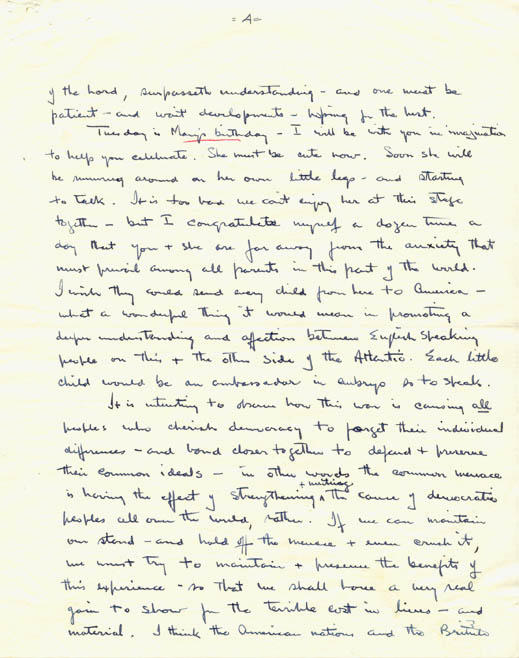 = A =
of the Lord, surpasseth understanding - and one must be
patient - and wait developments - hoping for the best.
Tuesday is Mary's birthday - I will be with you in imagination
to help you celebrate. She must be cute now. Soon she will
be running around on her own little legs - and starting
to talk. It is too bad we can't enjoy her at this stage
together - but I congratulate myself a dozen times a
day that you + she are far away from the anxiety that
must prevail among all parents in this part of the world.
I wish they could send every child from here to America -
what a wonderful thing it would mean in promoting a
deeper understanding and affection between English speaking
people on this + the other side of the Atlantic. Each little
child would be an ambassador in embryo so to speak.
It is interesting to observe how this war is causing all
peoples who cherish democracy to forget their individual
differences - and bond closer together to defend + preserve
their common ideals - in other words the common menace
+ uniting
is having the effect of strengthening ^ the cause of democratic
peoples all over the world, rather. If we can maintain
our stand - and hold off the menace + even crush it,
we must try to maintain + preserve the benefits of
this experience - so that we shall have a very real
gain to show for the terrible cost in lives - and
material. I think the American nations and the British